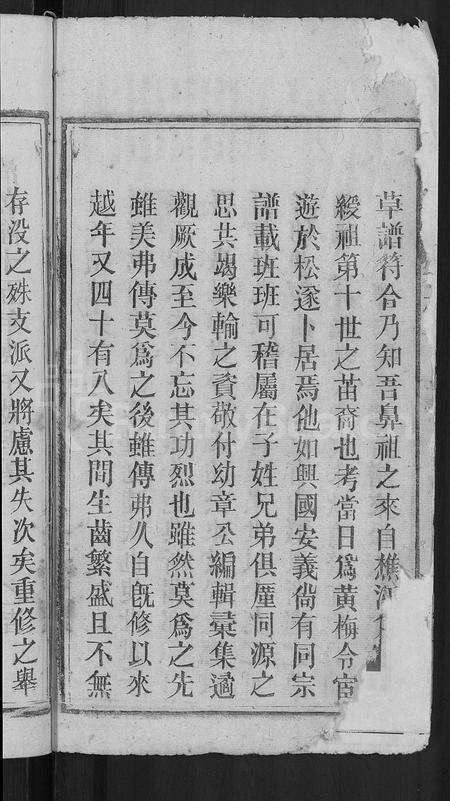 草譜符合乃知吾鼻祖之來自樵
緩祖第十世之苗裔也考當日爲黃梅令宦
遊於松遂卜居焉他如興國安義尙有同宗
譜載班班可稽屬在子姓兄弟俱厪同源之
思共竭樂輸之資敬付幼章公編輯彚集遹
觀厥成至今不忘其功烈也雖然莫爲之先
雖美弗傳莫爲之後雖傳弗久自旣修以來
越年又四十有八矣其間生齒繁盛且不無
存没之殊支派又將慮其失次矣重修之舉